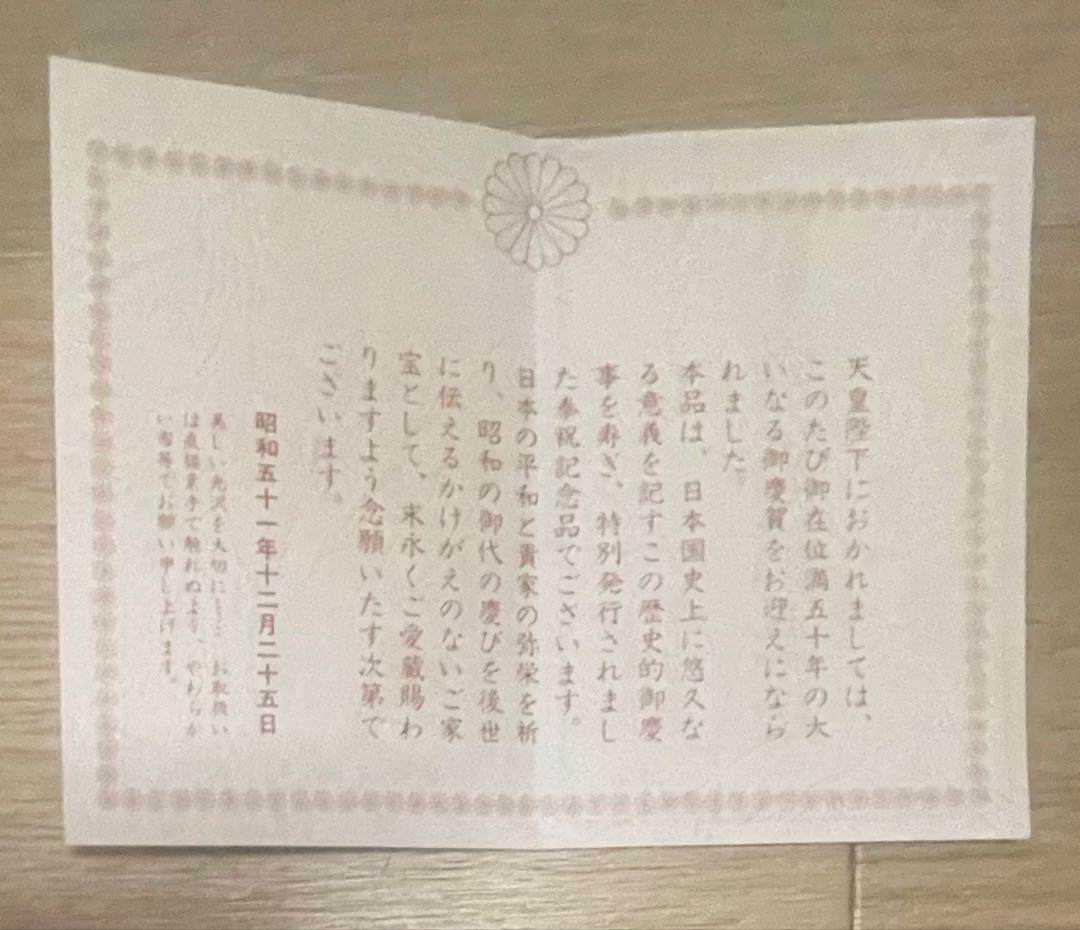 天皇陛下におかれましては、
このたび御在位満五十年の大
いなる御慶賀をお迎えになら
れました。
本品は、日本国史上に悠久な
る意義を記すこの歴史的御慶
事を寿ぎ、特別発行されまし
た奉祝記念品でございます。
日本の平和と貴家の弥栄を祈
り、昭和の御代の慶びを後世
に伝えるかけがえのないご家
宝として、末永くご愛蔵賜わ
りますよう念願いたす次第で
ございます。
昭和五十一年十二月二十五日
美しい光沢を大切に……お取扱い
は直接素手で触れぬよう、やわらか
い布等でお願い申し上げます。